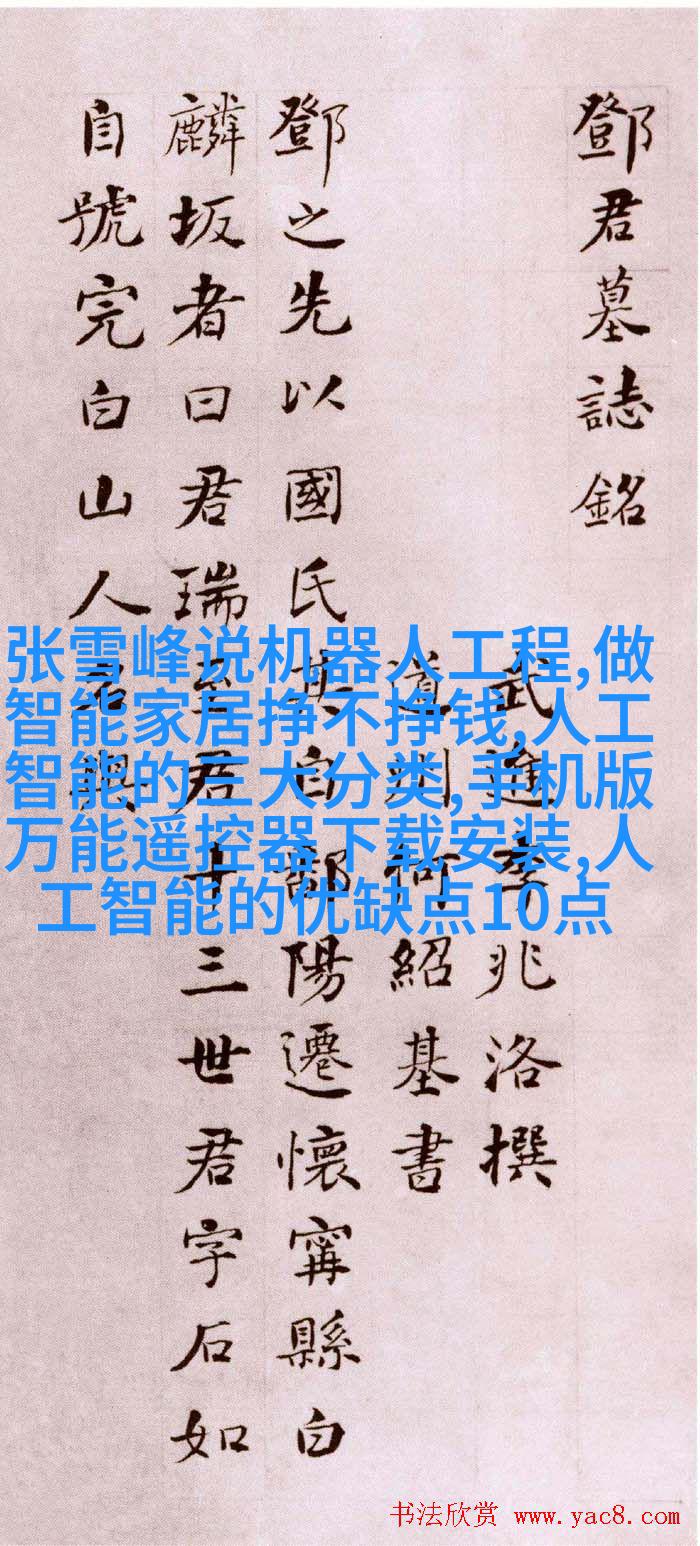 鄧君墓誌銘
武進李兆洛撰
道州何紹基書
鄧之先以國氏其自鄱陽遷懷寗縣白
麟坂者曰君瑞至君十三世君字石如
自號完白山人
张雪峰说机器人工程,做
智能家居挣不挣钱,人工
智能的三大分类,手机版
万能遥控器下载安装,人
工智能的优缺点10点
书法欣赏 www.yac8.com